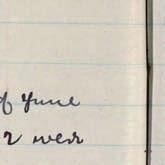 of June
2 wer